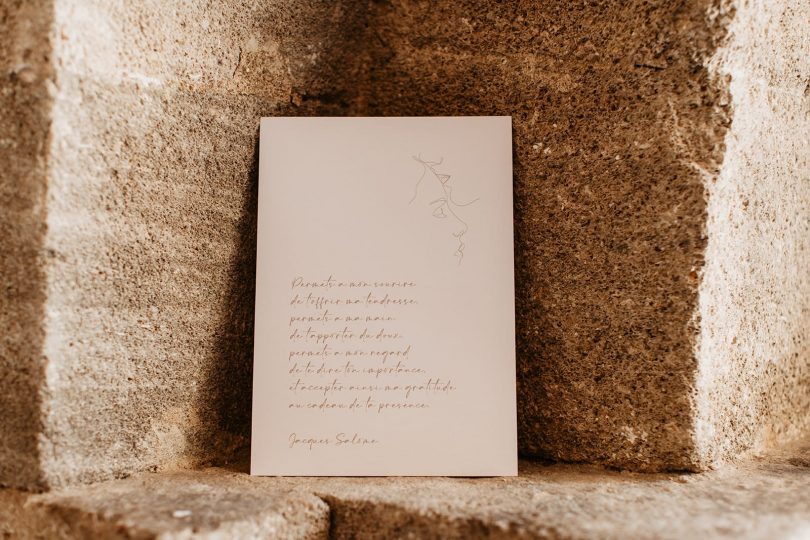 Permets a mon sourire
de t'offrir ma tendresse,
permets a ma main
de t'apporter du doux,
permets a mon regard
de te dire ton importance,
et accepter ainsi ma gratitude
au cadeau de ta presence.
Jacques Salome